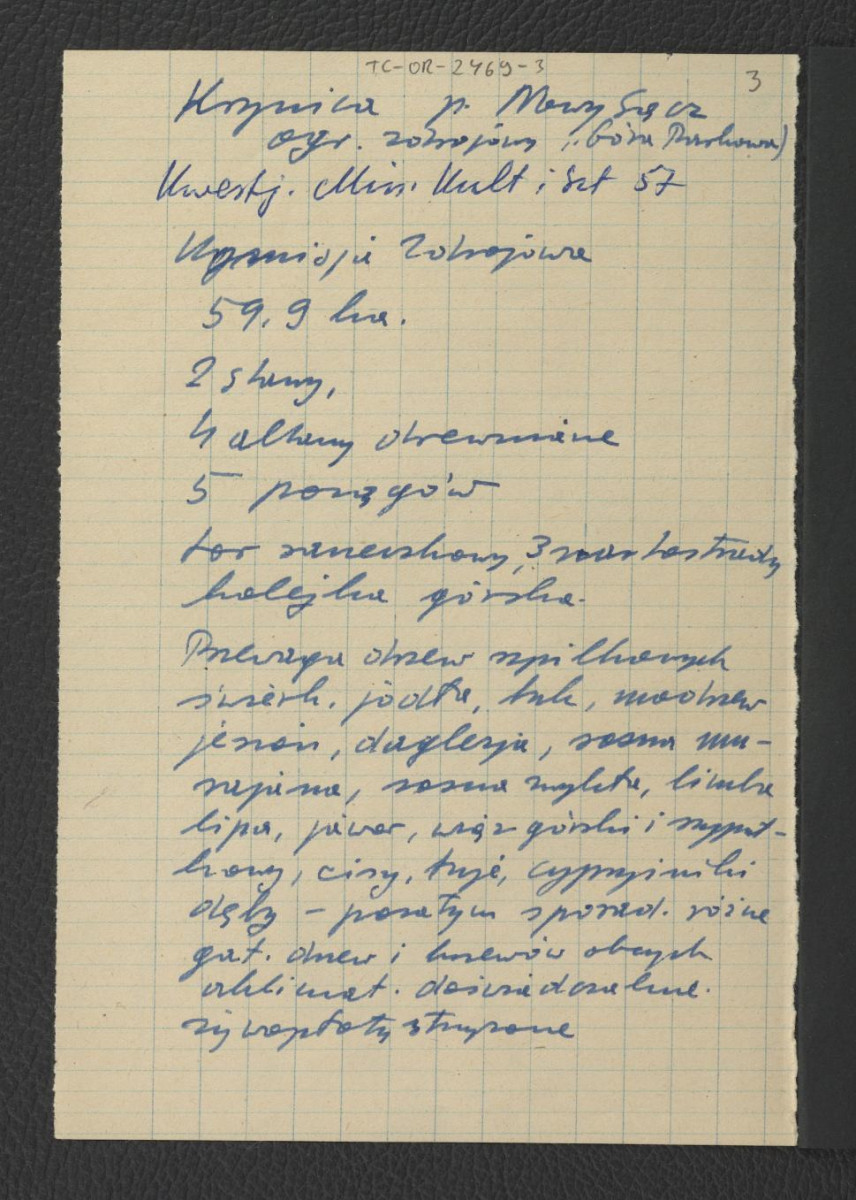 TC-OR-2469-3
3
Krynica p. Nowy Sącz
ogr. zdrojowy (Góra Parkowa)
Kwestj. Min. Kult i Szt 57
Zdrojowa
59,9 ha.
2 stawy,
4 altany drewniane
5 posągów
tor saneczkowy, 3 nartostrady
kolejka górska.
Przewaga drzew szpilkowych
świerk. jodła, buk, modrzew
jesion, daglezja, sosna
sosna zwykła, limba
lipa, jawor, wiąz górski i szypuł-
kowy, cisy, tuje, cypryśniki
dęby – pozatym sporad. różne
gat. drzew i krzewów obcych
aklimat. doświadczalne.
żywopłoty strzyżone